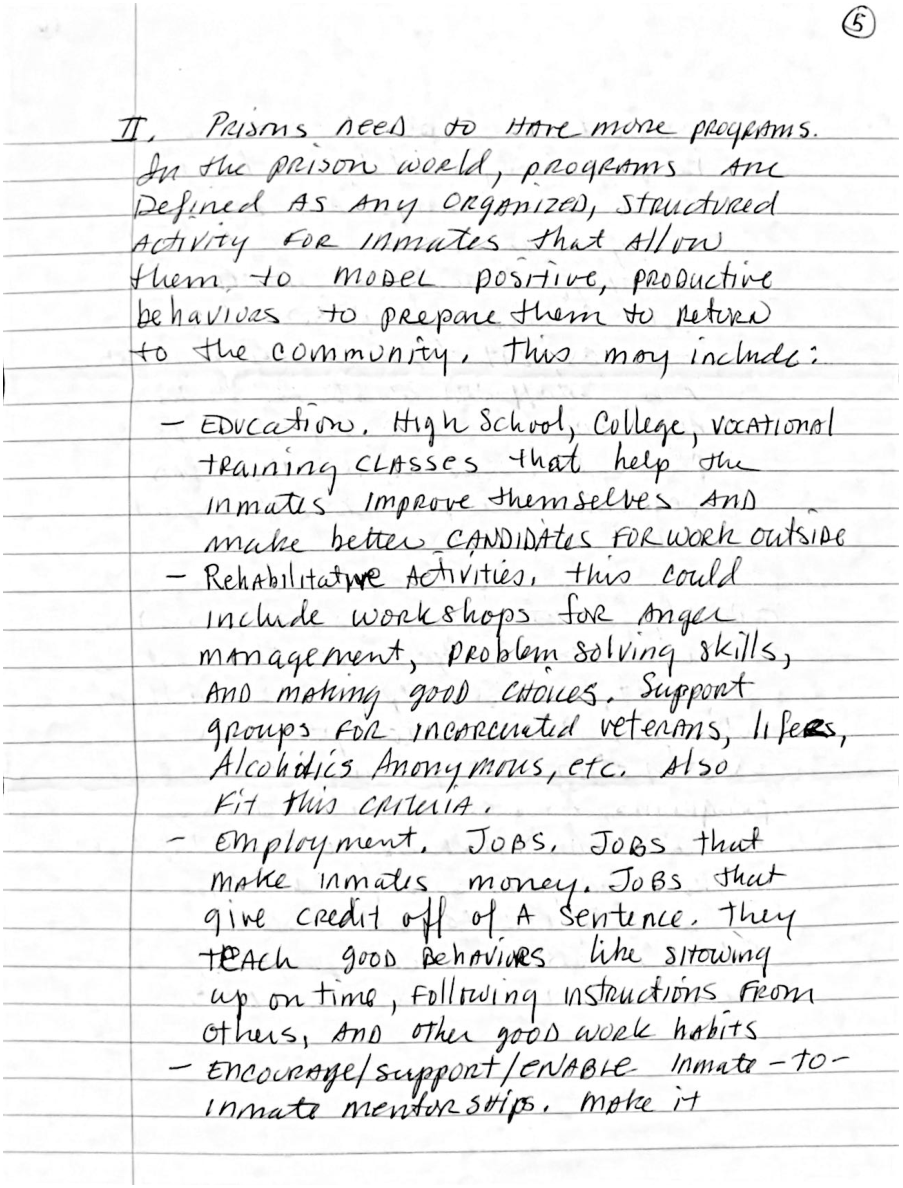 5
II. Prisons need to have more programs.
In the prison world, programs are
defined as any organized, structured
activity for inmates that allow
them to model positive, productive
behaviors to prepare them to return
to the community. This may include:
- Education. High School, College, vocational
training classes that help the
inmates improve themselves and
make better candidates for work outside
- Rehabilitative Activities. This could
include workshops for anger
management, problem solving skills,
and making good choices. Support
groups for incarcerated veterans, lifers,
Alcoholics Anonymous, etc. Also
fit this criteria.
- Employment. Jobs. Jobs that
make inmates money. Jobs that
give credit off of a sentence. They
teach good behaviors like showing
up on time, following instructions from
others, and other good work habits
- Encourage/support/enable inmate-to-
inmate mentorships. Make it